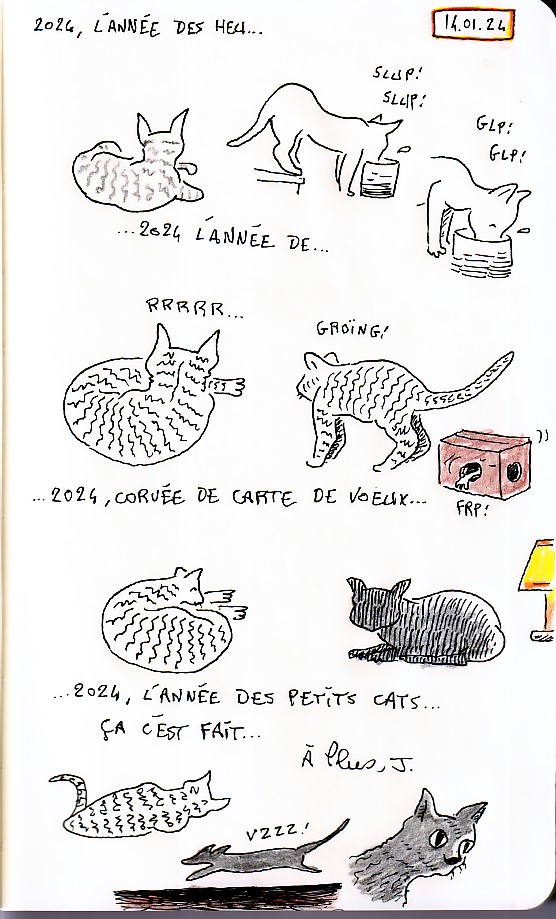 2024, L'ANNÉE DES HEU...
14.01.24
SLUP!
SLUP!
GLP!
GLP!
...2024 L'ANNÉE DE...
RRRRR...
GROÏNG!
...2024, CORVÉE DE CARTE DE VOEUX...
FRP!
...2024, L'ANNÉE DES PETITS CATS...
ÇA C'EST FAIT...
À Plus, J.
VZZZ!